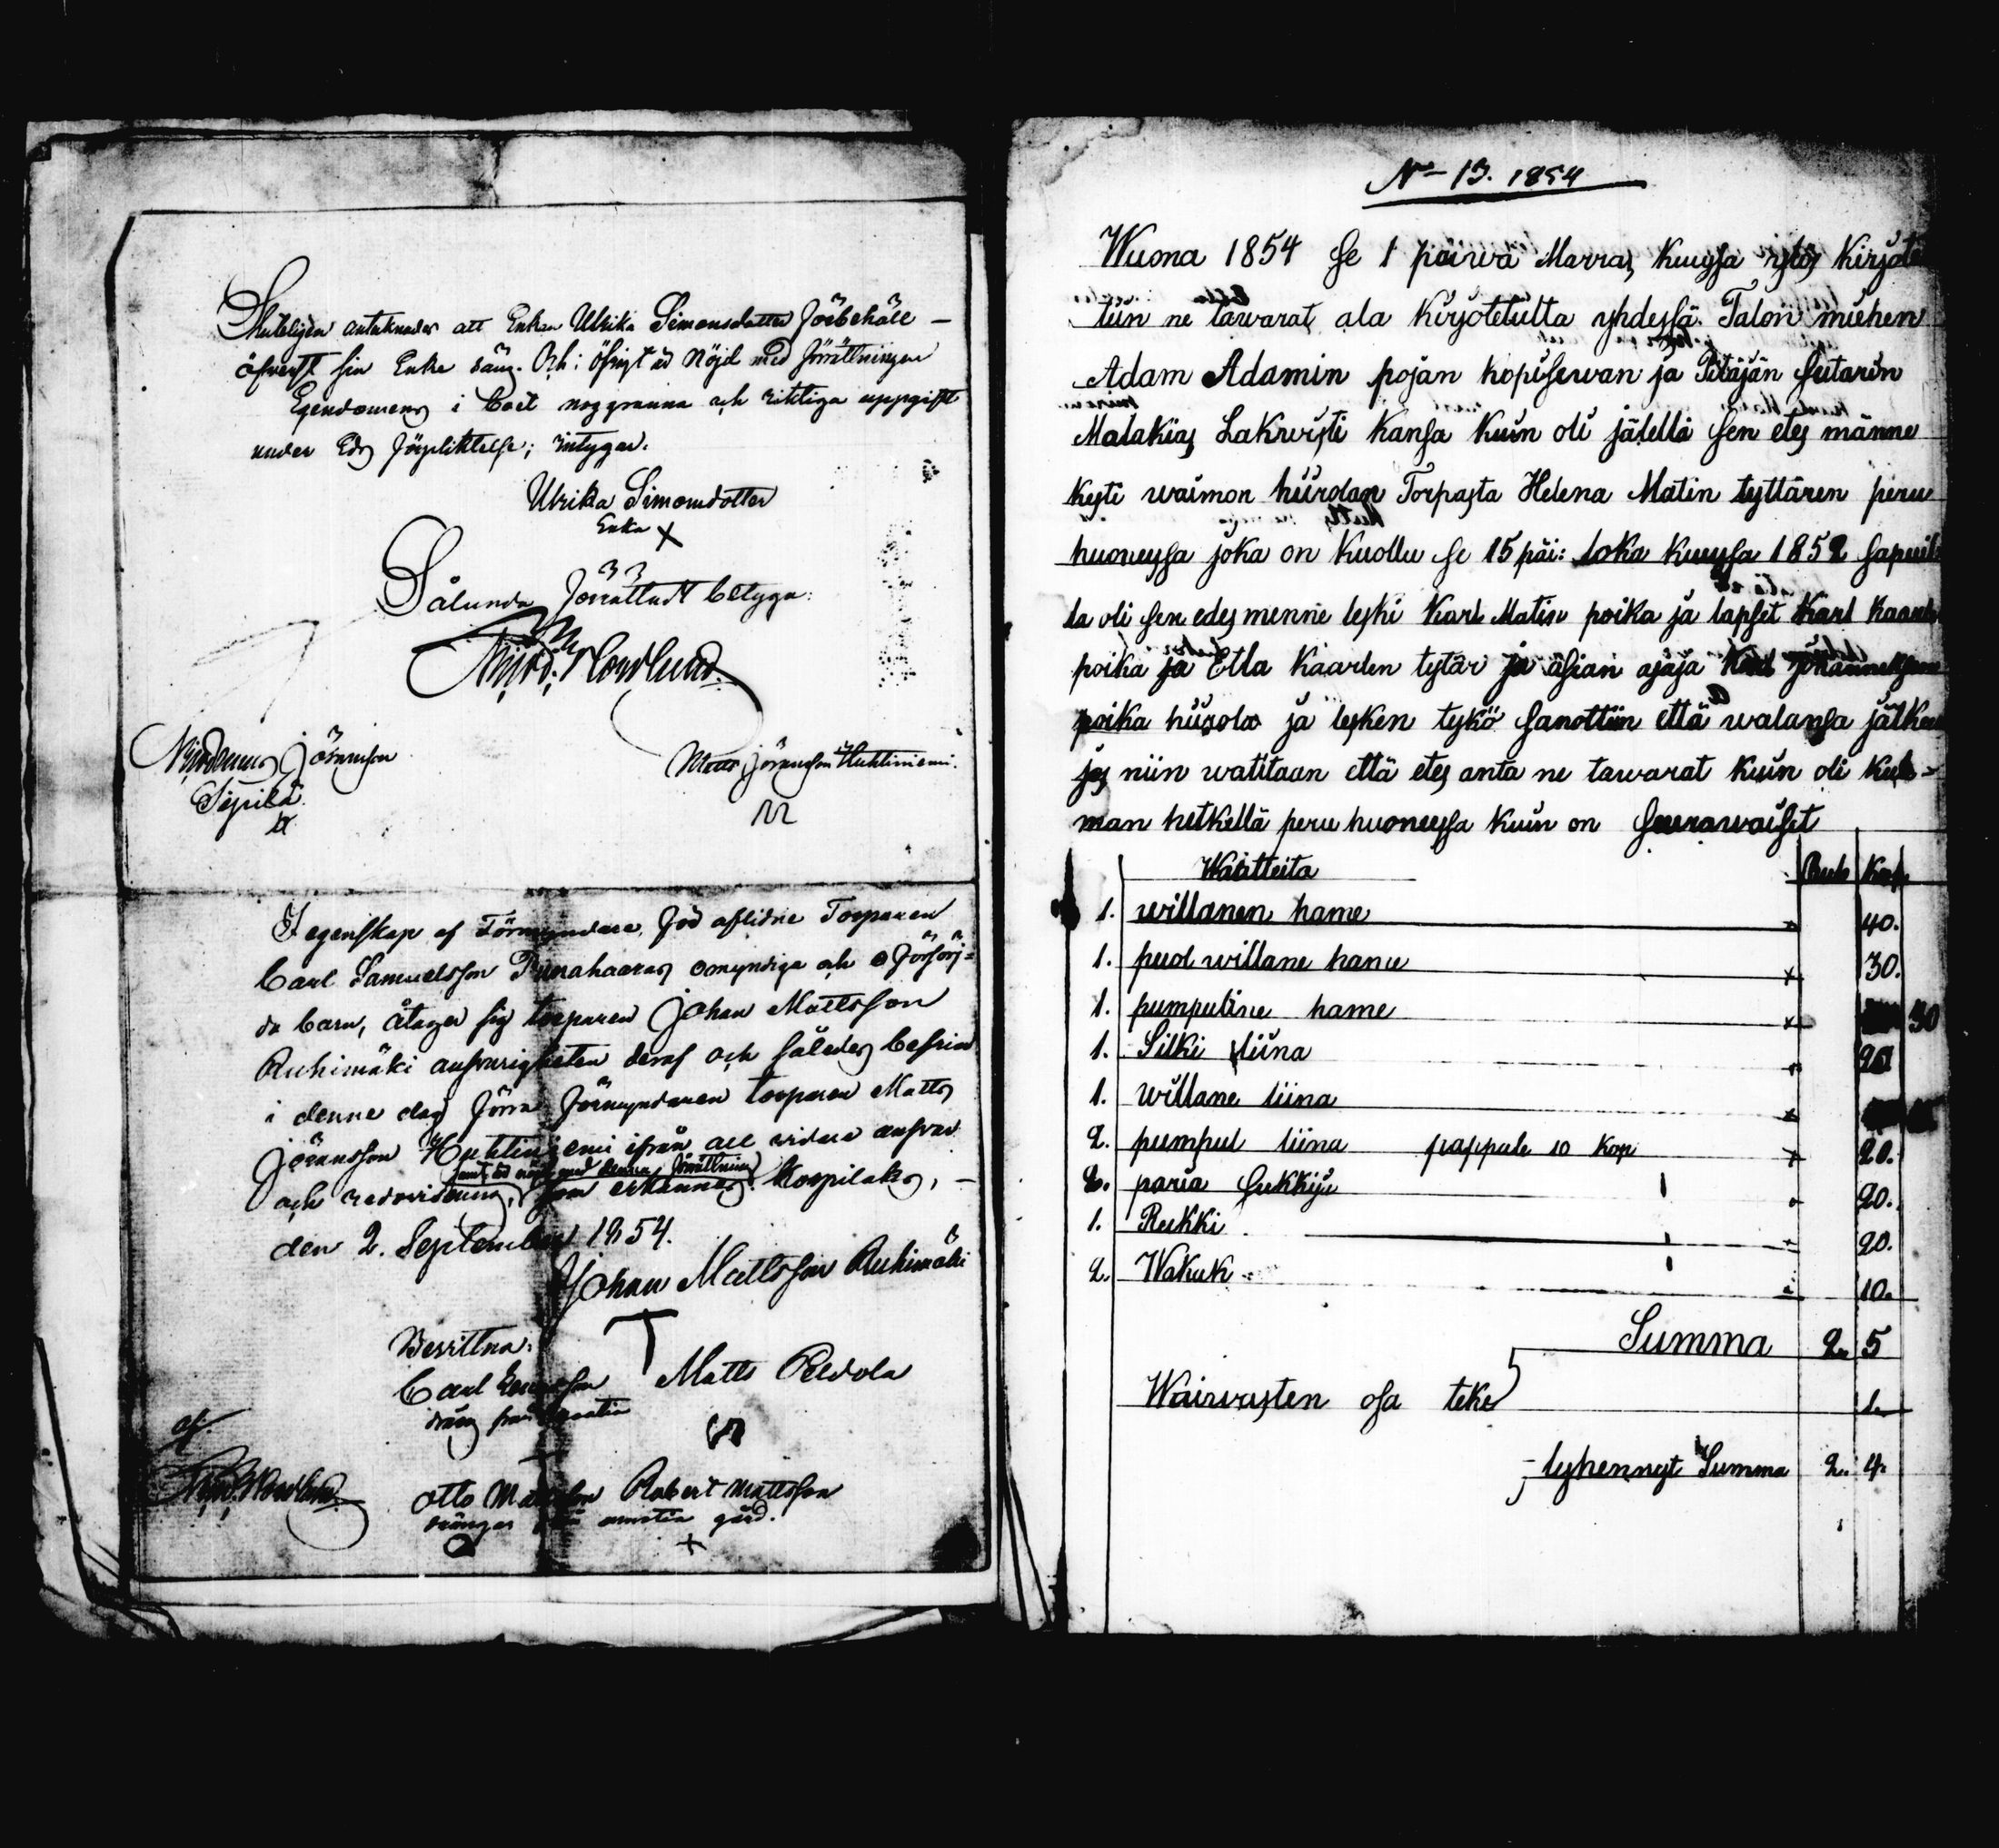 Sluteligen antecknades att Enkan Ulrika Simonsdotter förbehåll
åfventt sin Enke säng. Och i öfrigt är nöjd med förrättningen
Egendomens i boet noggranna och riktiga uppgift
under Eds förpliktelse; intygar.
Ulrika Simonsdotter
Enka X
Sålunda förrättadt betyga:
Nordlund
Nicodemus Jöransson
Sipilä
Matts Jöransson Huhtiniemi.
I egenskap af Förmyndare för aflidne Torparen
Carl Samuelsson Punahaaras omyndiga och oförsörj=
da barn, åtager sig torparen Johan Mattsson
Ruhimäki ansvarigheten deraf och således befria
i denne dag förra förmyndaren torparen Matts
Jöransson Huhtiniemi ifrån all vidare ansvar
samt är nöjd med denna förrättning
och redovisning, som erkännes. Korpilaks, –
den 2. September 1854.
Johan Mattsson Ruhimäki
Bevittna:
Carl Matts Peldola
dräng från
af.
Nordlund
Otto Robert Mattsson
dränger gård.
+
No 13. 1854
Wuona 1854 se 1 päiwä Marras kuussa ylös kirjote
tiin ne tawarat, ala kirjotetulta yhdessä Talon miehen
Adam Adamin pojan kopisewan ja Pitäjän seutarin
Malakias Lakwisti kansa kuin oli jälellä sen etes männe
kesti waimon hiirolan Torpasta Helena Matin tyttären peru
huoneyssa joka on kuollu se 15 päi: loka kuussa 1852 sapuil
la oli sen edes menne leski Karl Matin poika ja lapset Karl Kaarle
poika ja Etla Kaarlen tytär ja asian ajaja Karl Johanneksen
poika hiirola ja lesken tykö sanottiin että walansa jälkeen
jos niin watitaan että etes anta ne tawarat kuin oli kuol=
man hetkellä peru huoneyssa kuin on seurawaiset
Waatteita Rub Kop
1. willanen hame 40.
1. puol willane hame 30.
1. pumpuline hame 30
1. Silki liina 20
1. willane liina
2. pumpul liina pappale 10 kop 20.
2. paria sukkija 20.
1. Rukki 20.
2. Wakuk 10.
Summa 2. 5
Waiwasten osa teke 1.
lyhennyt Summa 2. 4.